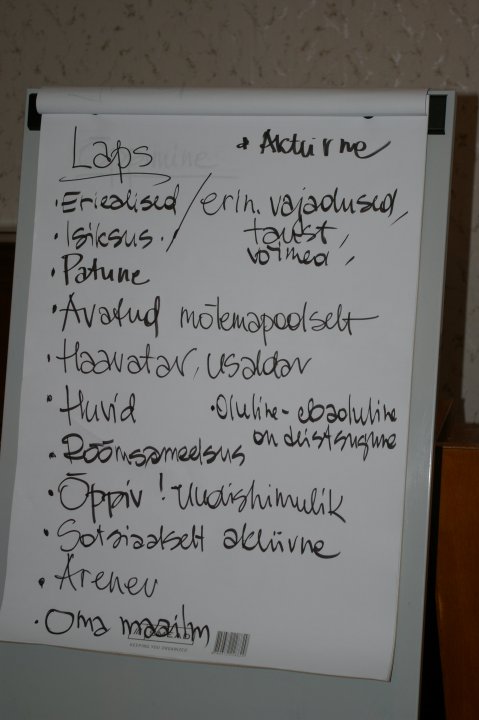 Laps
• Aktiivne
• Eriealised / erin. vajadused,
• Isiksus / taust,
võimed,
• Patune
• Avatud mõlemapoolselt
• Haavatav, usaldav
• Huvid
• Oluline - ebaoluline
on teistsugune
• Rõõmsameelsus
• Õppiv! Uudishimulik
• Sotsiaalselt aktiivne
• Arenev
• Oma maailm
KEEPING YOU ORGANIZED